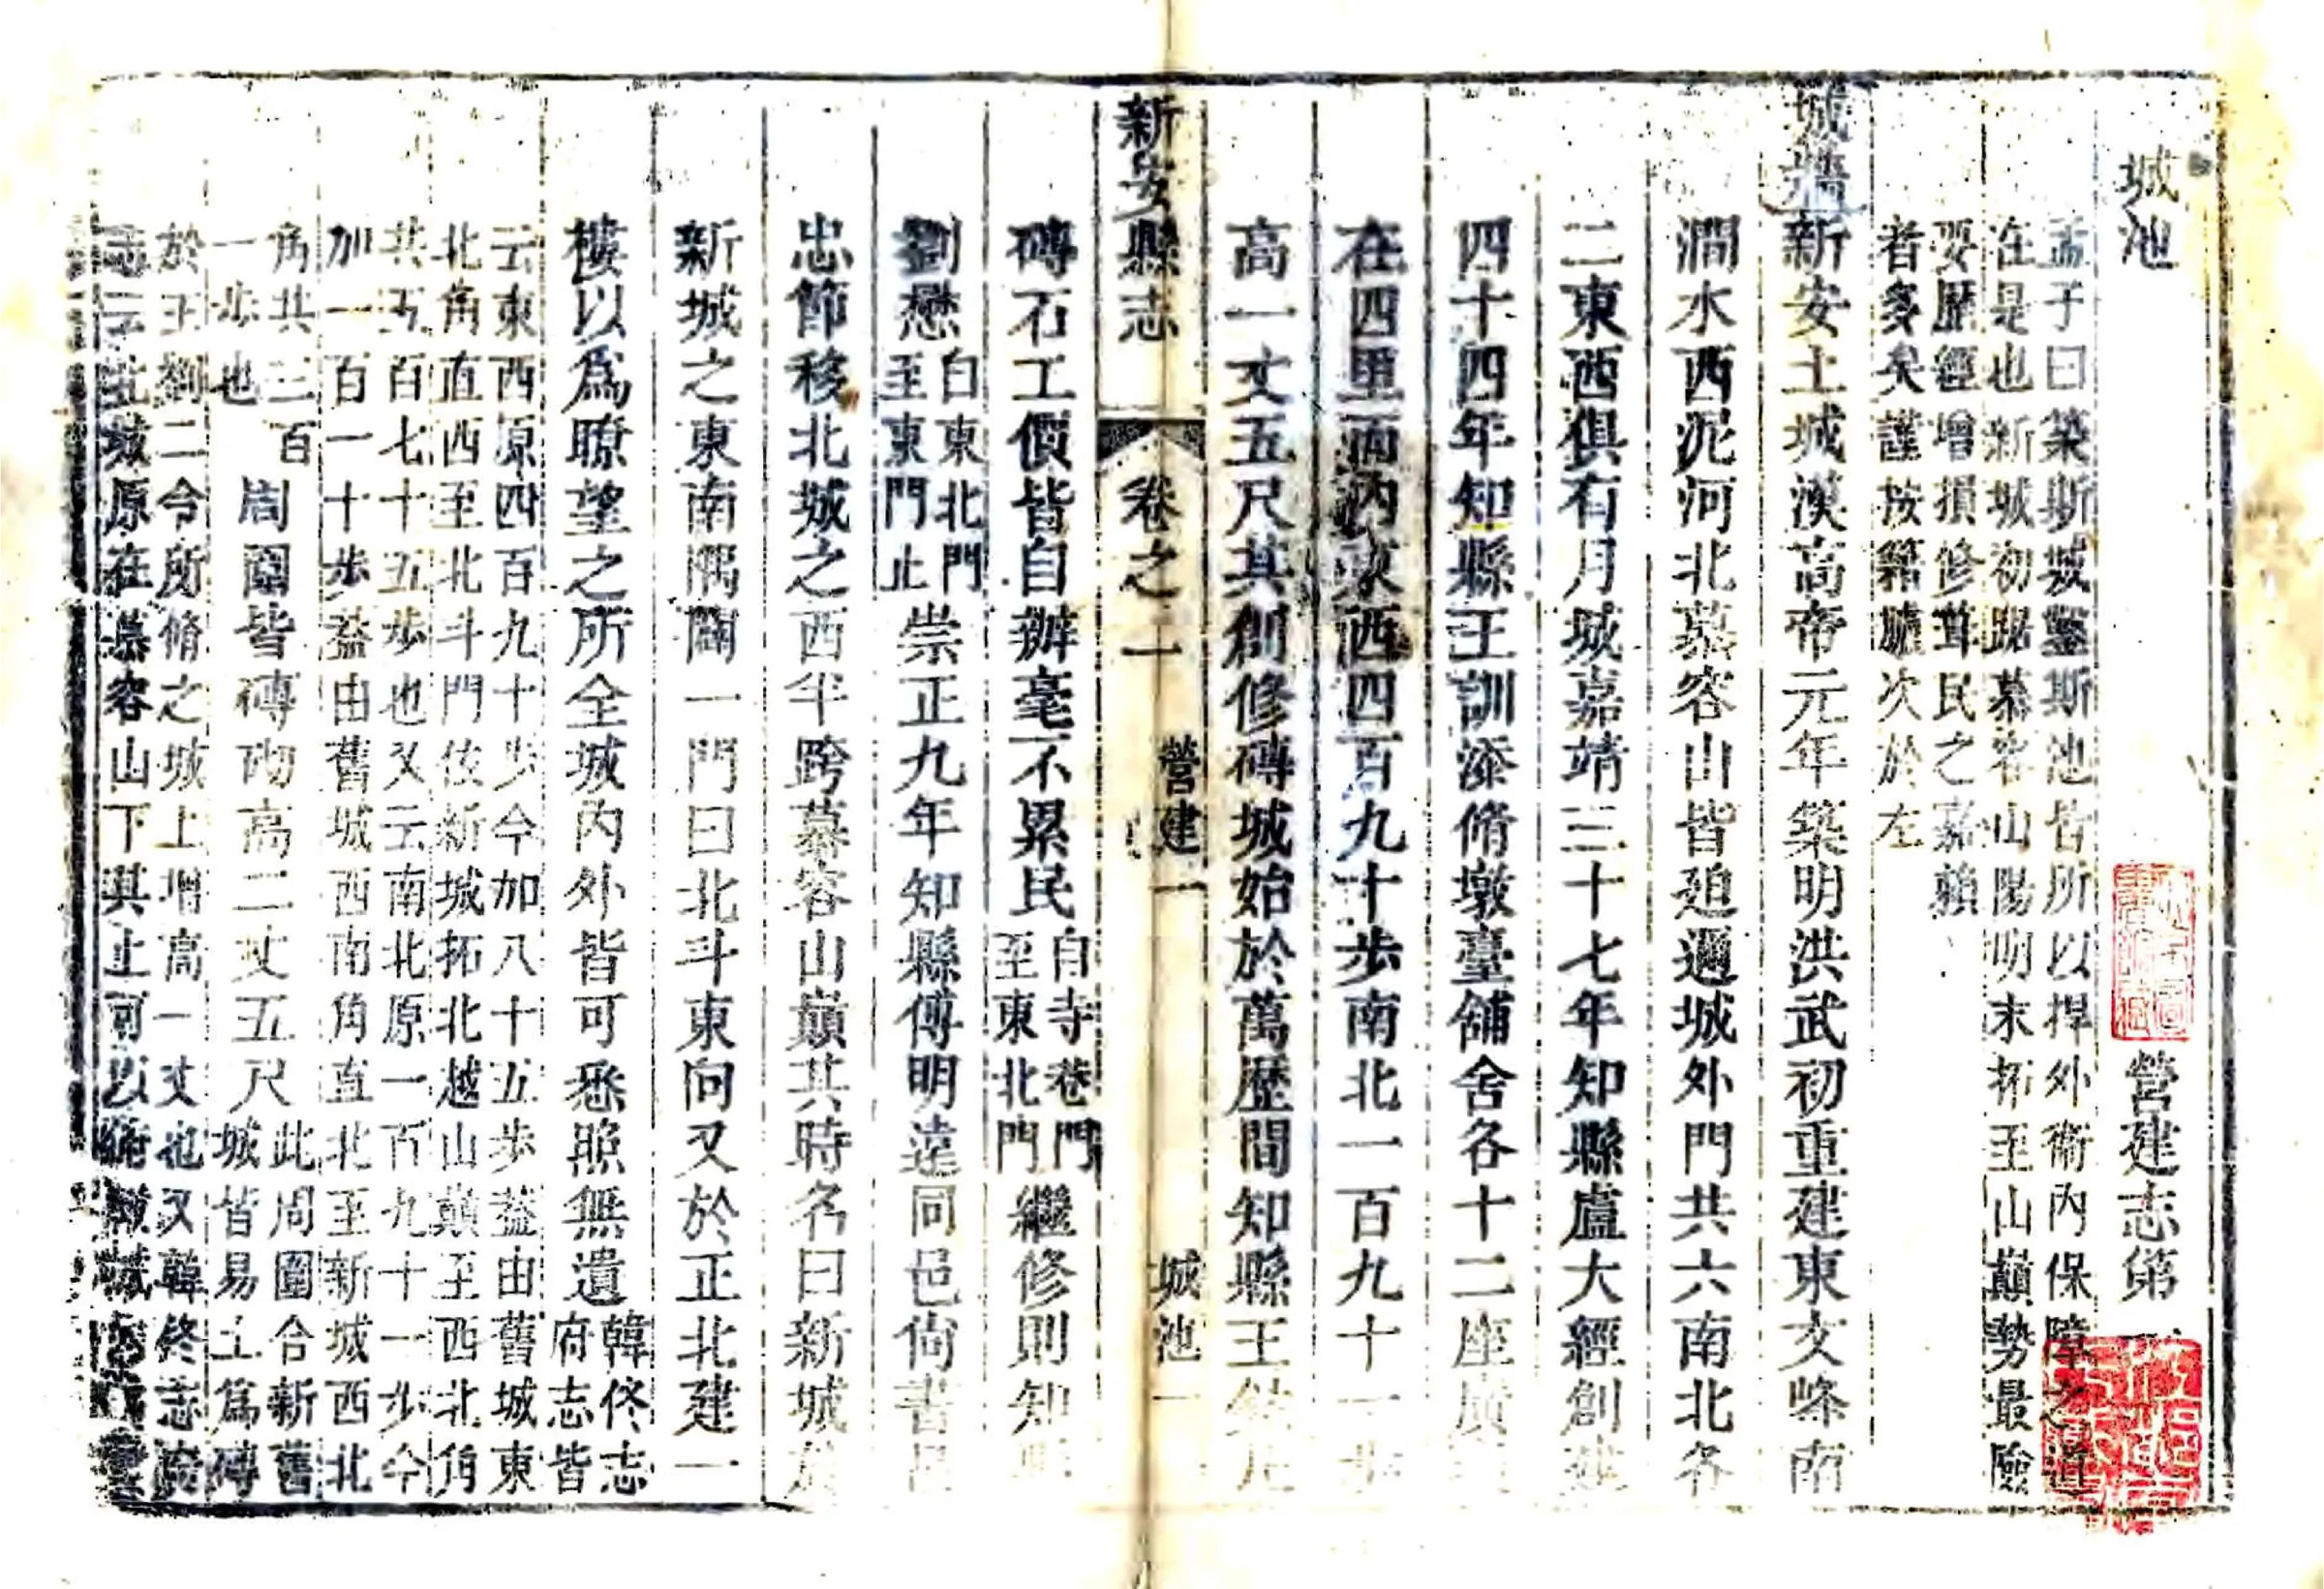 城池 營建志第
孟子曰築斯城鑿斯池皆所以捍外衛內保障之道
在是也新城初踞慕容山陽明末拓至山巔勢最險
要歷經增損修葺民之嘉賴
者多矣謹按籍臚次於左
城牆新安土城漢高帝元年築明洪武初重建東文峰南
澗水西泥河北慕容山皆迫邇城外門共六南北各
二東西俱有月城嘉靖三十七年知縣盧大經創建
四十四年知縣王訓添脩墩臺舖舍各十二座廣
在四里而內東西四百九十步南北一百九十一步
高一丈五尺其創修磚城始於萬歷間知縣王
新安縣志 卷之二 營建一 城池一
磚石工價皆自辦毫不累民自寺巷門至東北門繼修則知縣
劉懋自東北門至東門止崇正九年知縣傅明達同邑尚書呂
忠節移北城之西半跨慕容山巔其時名曰新城於
新城之東南隅開一門曰北斗東向又於正北建一
樓以爲瞭望之所全城內外皆可悉照無遺韓佟志府志皆
云東西原四百九十步今加八十五步葢由舊城東
北角直西至北斗門伩新城拓北越山巔至西北角
共五百七十五步也又云南北原一百九十一步今
加一百一十步葢由舊城西南角直北至新城西北
角共三百
一步也 周圍皆磚砌高二丈五尺此周圍合新舊城皆易土爲磚
於王劉二令所脩之城上增高一丈也又韓佟志於
北城原在慕容山下其止可以